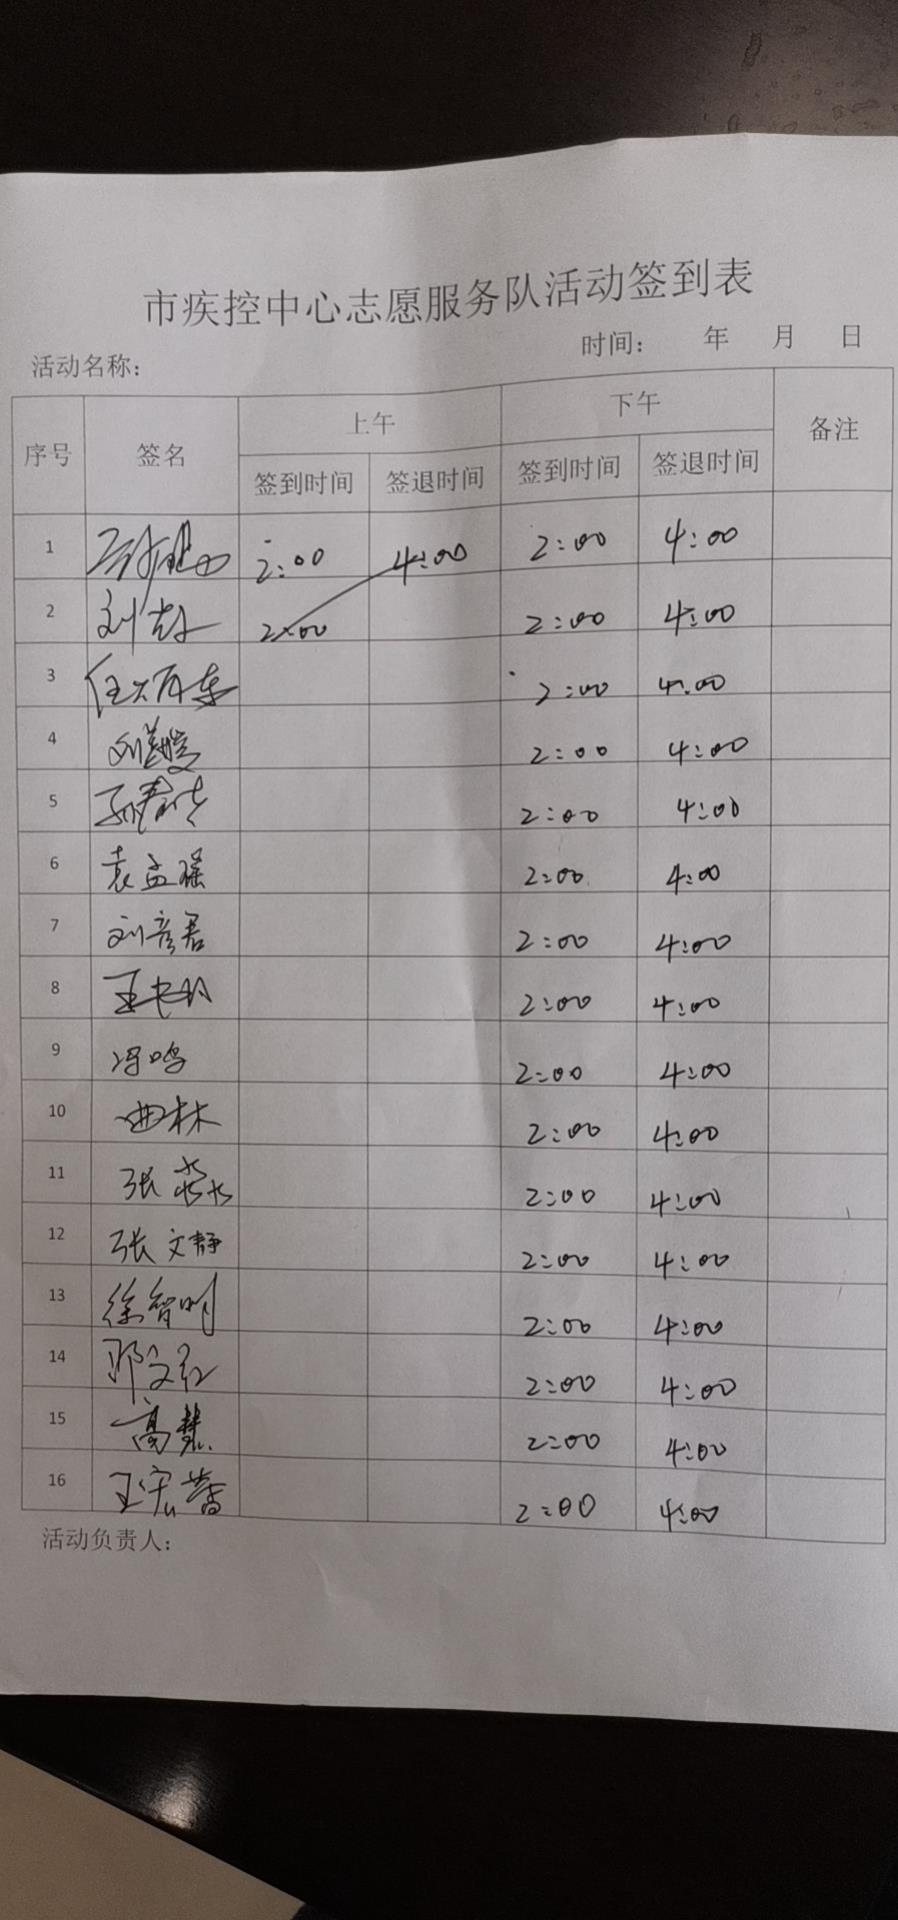 市疾控中心志愿服务队活动签到表
时间： 年 月 日
活动名称：
序号 签名 上午 下午 备注
签到时间 签退时间 签到时间 签退时间
1 2:00 4:00 2:00 4:00
2 刘 2:00 2:00 4:00
3 任 2:00 4:00
4 刘 2:00 4:00
5 孙 2:00 4:00
6 袁孟瑶 2:00 4:00
7 刘彦君 2:00 4:00
8 王 2:00 4:00
9 冯鸣 2:00 4:00
10 曲林 2:00 4:00
11 张淼 2:00 4:00
12 张文静 2:00 4:00
13 徐智明 2:00 4:00
14 邓文红 2:00 4:00
15 高慧 2:00 4:00
16 王宏蕾 2:00 4:00
活动负责人：